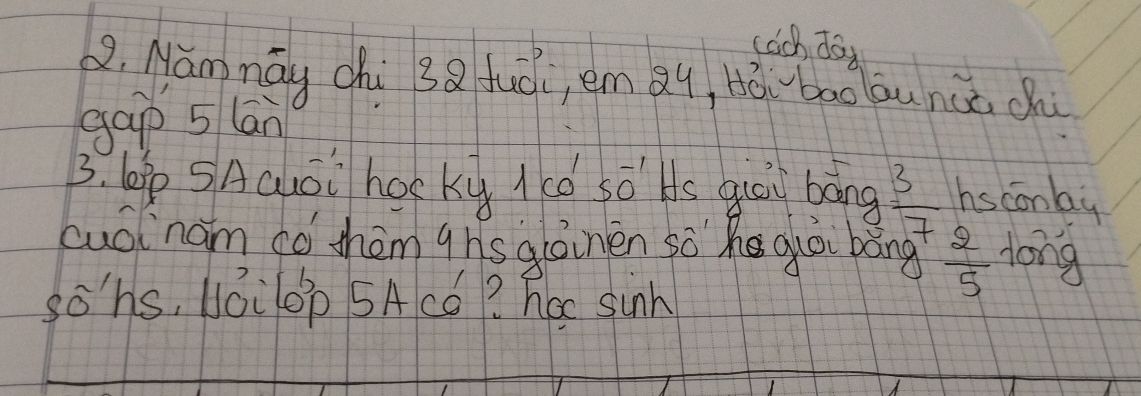 cách đây
2. Năm nay chị 32 tuổi, em 24, Hỏi bao lâu nữa chị
gấp 5 lần
3. lớp 5A cuối học kỳ 1 có số Hs giỏi bằng 3/7 hs còn lại
cuối năm có thêm 4 hs giỏi nên số hs giỏi bằng 2/5 tổng
số hs. Hỏi lớp 5A có ? học sinh